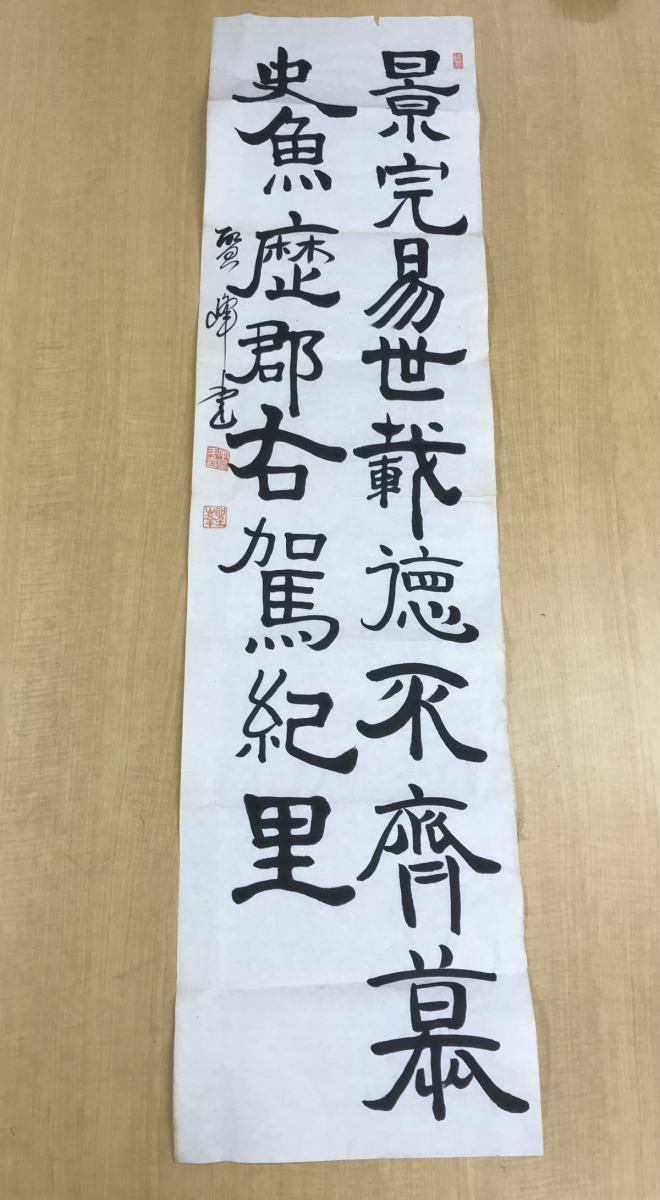 景完易世載德不齊慕
史魚歷郡右駕紀里
聖峰書